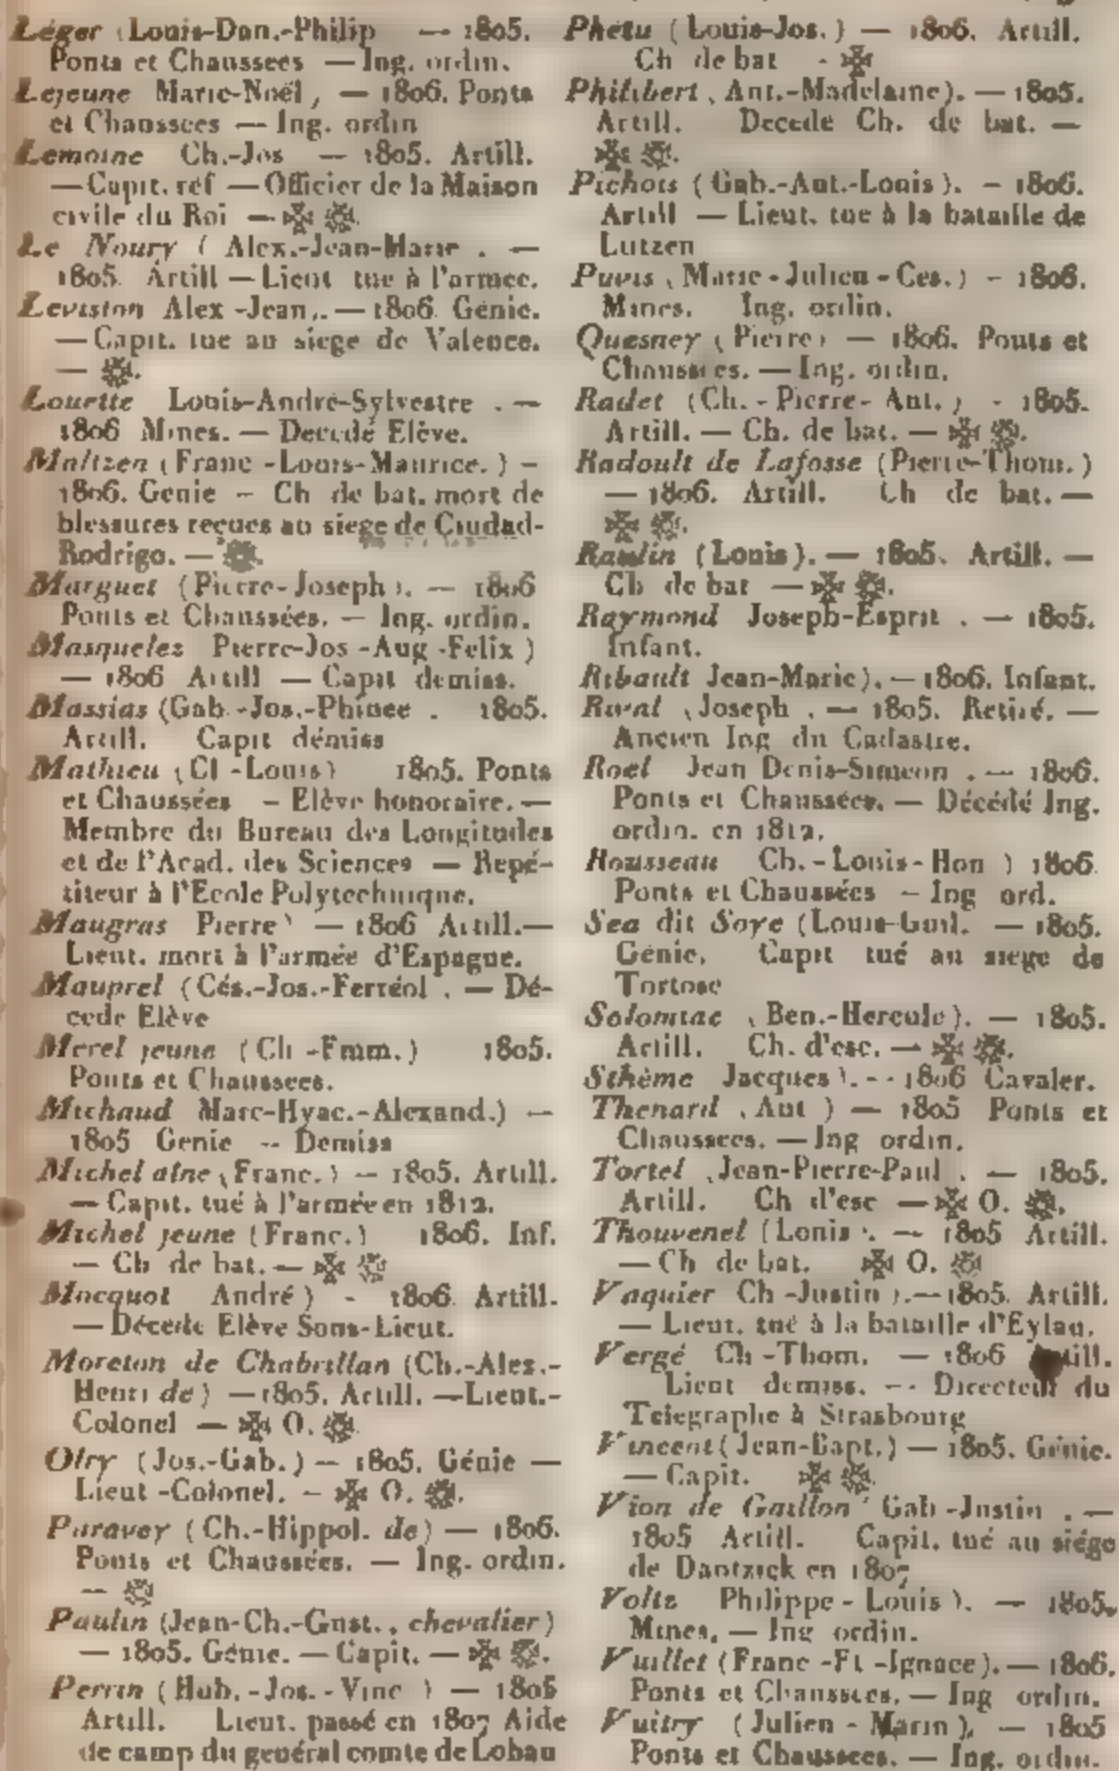 Léger (Louis-Dan.-Philip — 1805.
Ponts et Chaussees — Ing. ordin.
Lejeune Marie-Noël, — 1806. Ponts
et Chaussees — Ing. ordin
Lemoine Ch.-Jos — 1805. Artill.
— Capit. réf — Officier de la Maison
civile du Roi —
Le Noury ( Alex.-Jean-Marie . —
1805. Artill — Lieut tue à l'armee.
Leviston Alex -Jean,. — 1806. Génie.
— Capit. tue au siege de Valence.
—
Louette Louis-André-Sylvestre . —
1806 Mines. — Decedé Elève.
Maltzen (Franc -Louis-Maurice. ) –
1806. Genie – Ch de bat. mort de
blessures reçues au siege de Ciudad-
Rodrigo. —
Marguet (Pierre-Joseph ). — 1806
Ponts et Chaussées. — Ing. ordin.
Masquelez Pierre-Jos -Aug -Felix )
— 1806 Artill — Capit demiss.
Massias (Gab -Jos.-Phinee . 1805.
Artill. Capit démiss
Mathieu (Cl -Louis) 1805. Ponts
et Chaussées – Elève honoraire. —
Membre du Bureau des Longitudes
et de l'Acad. des Sciences — Repé-
titeur à l'Ecole Polytechnique.
Maugras Pierre) — 1806 Artill.—
Lieut. mort à l'armée d'Espagne.
Mauprel (Cés.-Jos.-Ferréol . — Dé-
cede Elève
Merel jeune (Ch -Emm.) 1805.
Ponts et Chaussees.
Michaud Marc-Hyac.-Alexand.) —
1805 Genie -- Demiss
Michel aîne (Franc. ) — 1805. Artill.
— Capit. tué à l'armée en 1812.
Michel jeune (Franc.) 1806. Inf.
— Ch de bat. —
Mocquot André) - 1806. Artill.
— Décede Elève Sous-Lieut.
Moreton de Chabrillan (Ch.-Alex.-
Henri de) — 1805. Artill. — Lieut.-
Colonel — O.
Olry (Jos.-Gab.) — 1805. Génie —
Lieut -Colonel. – O.
Paravey (Ch.-Hippol. de) — 1806.
Ponts et Chaussées. — Ing. ordin.
—
Paulin (Jean-Ch.-Gust., chevalier)
— 1805. Génie. — Capit. —
Perrin (Hub. -Jos. -Vinc ) — 1805
Artill. Lieut. passé en 1807 Aide
de camp du genéral comte de Lobau
Phetu (Louis-Jos.) — 1806. Artill.
Ch de bat -
Philibert , Ant.-Madelaine). — 1805.
Artill. Decede Ch. de bat. —
Pichois (Gab.-Ant.-Louis). – 1806.
Artill — Lieut. tue à la bataille de
Lutzen
Puvis , Marie-Julien-Ces.) – 1806.
Mines. Ing. ordin.
Quesney (Pierre) — 1806. Ponts et
Chaussées. — Ing. ordin.
Radet (Ch.-Pierre-Ant.) - 1805.
Artill. — Ch. de bat. —
Radoult de Lafosse (Pierre-Thom.)
— 1806. Artill. Ch de bat. —
Raulin (Louis). — 1805. Artill. —
Ch de bat —
Raymond Joseph-Esprit . — 1805.
Infant.
Ribault Jean-Marie). — 1806. Infant.
Rival , Joseph . — 1805. Retiré. —
Ancien Ing du Cadastre.
Roel Jean Denis-Simeon . — 1806.
Ponts et Chaussées. — Décédé Ing.
ordin. en 1812.
Rousseau Ch.-Louis-Hon ) 1806.
Ponts et Chaussées – Ing ord.
Sea dit Soye (Louis-Guil. — 1805.
Génie. Capit tué au siege de
Tortose
Solomiac , Ben.-Hercule). — 1805.
Artill. Ch. d'esc. —
Sthème Jacques ). -- 1806 Cavaler.
Thenard , Ant ) — 1805 Ponts et
Chaussees. — Ing ordin.
Tortel , Jean-Pierre-Paul . — 1805.
Artill. Ch d'esc — O.
Thouvenel (Louis ). — 1805 Artill.
— Ch de bat. O.
Vaquier Ch -Justin ). — 1805. Artill.
— Lieut. tué à la bataille d'Eylau.
Vergé Ch -Thom. — 1806 Artill.
Lieut demiss. -- Directeur du
Telegraphe à Strasbourg
Vincent (Jean-Bapt.) — 1805. Génie.
— Capit.
Vion de Gaillon Gab -Justin . —
1805 Artill. Capit. tué au siége
de Dantzick en 1807
Voltz Philippe-Louis ). — 1805.
Mines. — Ing ordin.
Vuillet (Franc -Ft -Ignace). — 1806.
Ponts et Chaussees. — Ing ordin.
Vuitry (Julien-Marin). — 1805
Ponts et Chaussees. — Ing. ordin.